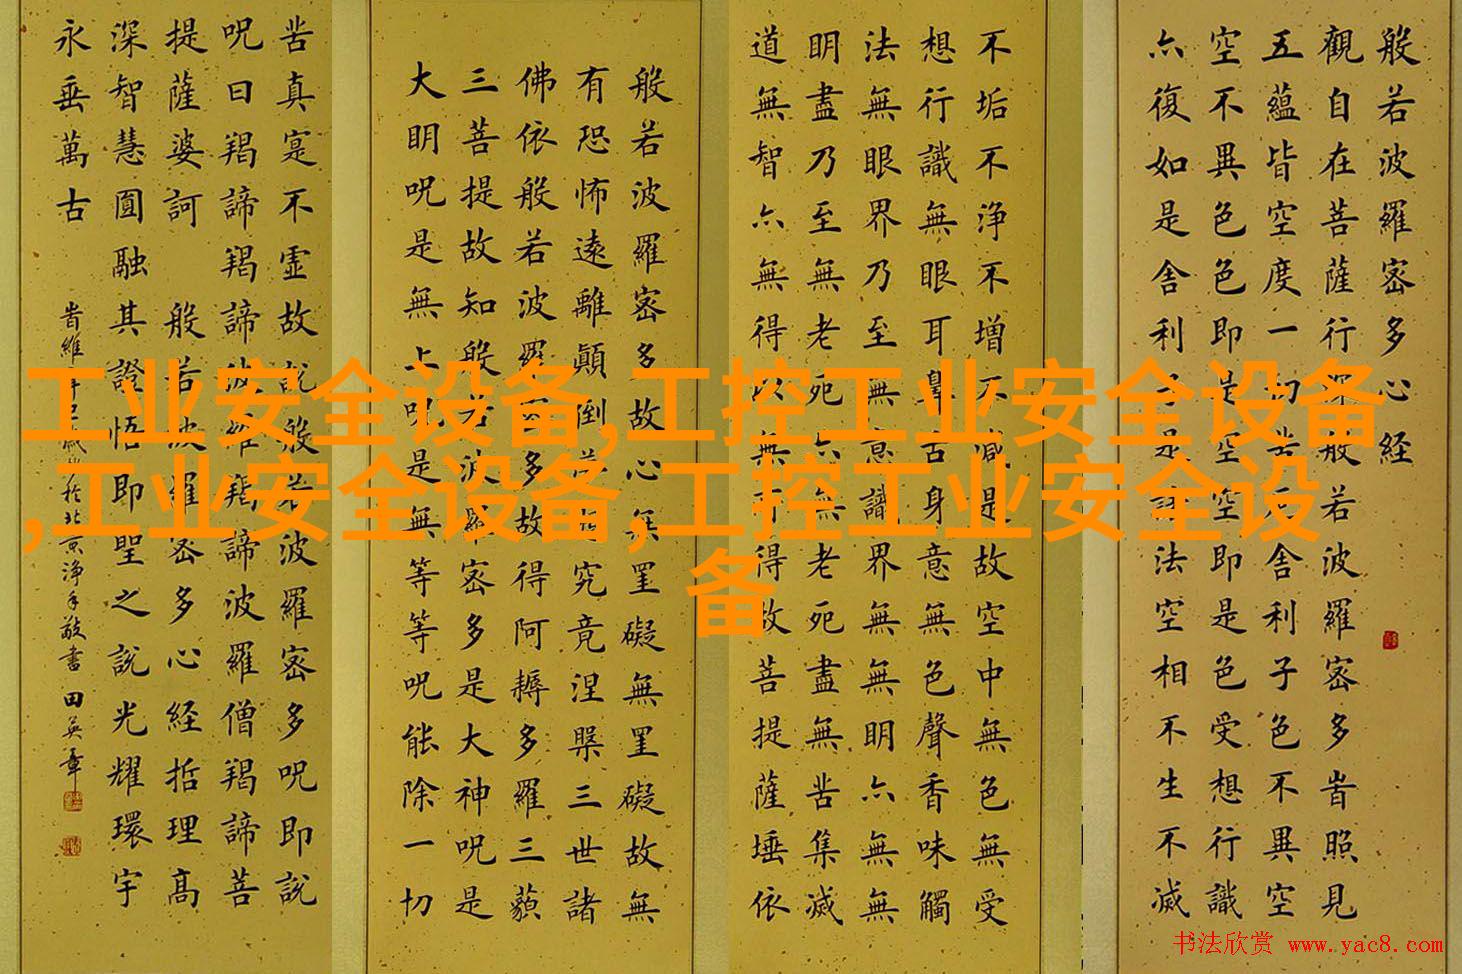 般若波羅密多心经
觀自在菩薩行深般若波羅密多旹照見
五蘊皆空度一切苦厄舍利子色不異空
空不異色色即是空空即是色受想行識
亦復如是舍利子是諸法空相不生不滅
不垢不浄不增不減是故空中無色無受
想行識無眼耳鼻舌身意無色聲香味觸
法無眼界乃至無意識界無無明亦無無
明盡乃至無老死亦無老死盡無苦集滅
道無智亦無得以無所得故菩提薩埵依
般若波羅密多故心無罣礙無罣礙故無
有恐怖遠離顛倒夢想究竟涅槃三世諸
佛依般若波羅密多故得阿耨多羅三藐
三菩提故知般若波羅密多是大神呪是
大明呪是無上呪是無等等呪能除一切
苦真寔不虛故說般若波羅密多呪即説
呪曰羯諦羯諦波羅羯諦波羅僧羯諦菩
提薩婆訶 般若波羅密多心经括理高
深智慧圓融其證悟即聖之説光耀環宇
永垂萬古
旹維辛巳歲於北京浄手敬書 田英章
工业安全设备,工控工业安全设备
,工业安全设备,工控工业安全设
备
书法欣赏 www.yac8.com